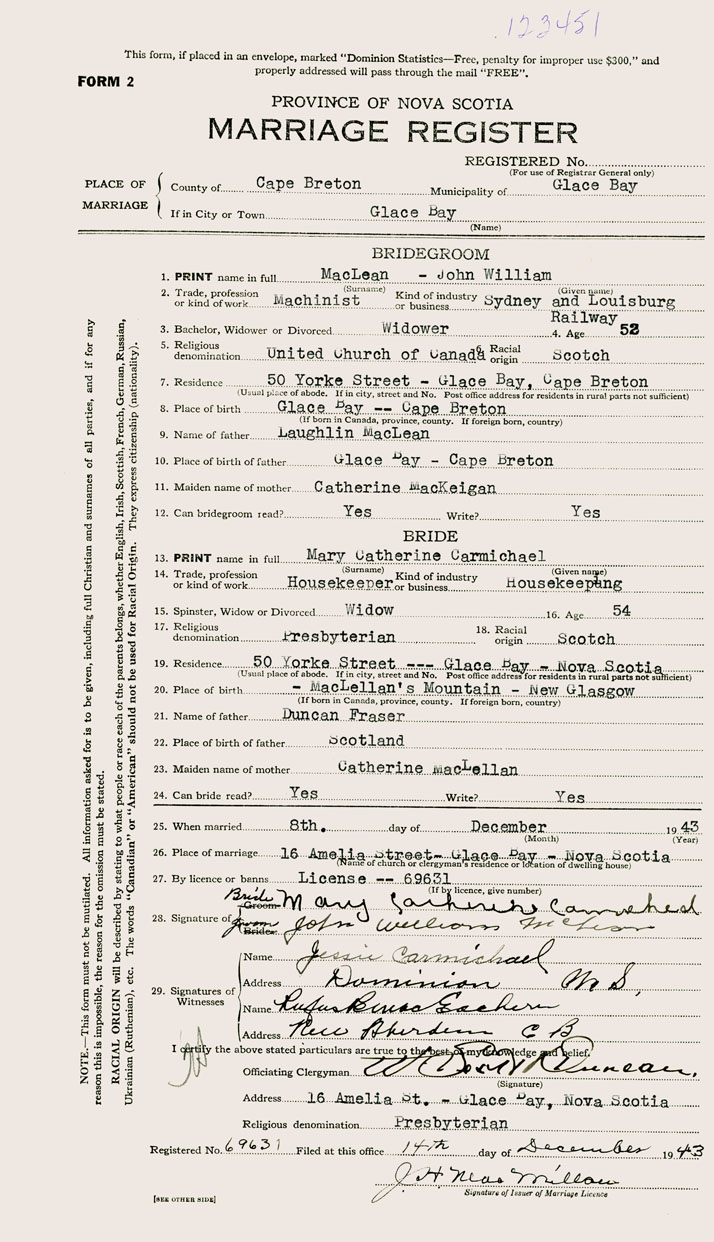 123451
This form, if placed in an envelope, marked "Dominion Statistics—Free, penalty for improper use $300," and
properly addressed will pass through the mail "FREE".
FORM 2
PROVINCE OF NOVA SCOTIA
MARRIAGE REGISTER
REGISTERED No.
(For use of Registrar General only)
PLACE OF MARRIAGE
County of Cape Breton Municipality of Glace Bay
If in City or Town Glace Bay
(Name)
BRIDEGROOM
1. PRINT name in full MacLean - John William
(Surname) (Given name)
2. Trade, profession or kind of work Machinist Kind of industry or business Sydney and Louisburg
Railway
3. Bachelor, Widower or Divorced Widower 4. Age 52
5. Religious denomination United Church of Canada 6. Racial origin Scotch
7. Residence 50 Yorke Street - Glace Bay, Cape Breton
(Usual place of abode. If in city, street and No. Post office address for residents in rural parts not sufficient)
8. Place of birth Glace Bay -- Cape Breton
(If born in Canada, province, county. If foreign born, country)
9. Name of father Laughlin MacLean
10. Place of birth of father Glace Bay - Cape Breton
11. Maiden name of mother Catherine MacKeigan
12. Can bridegroom read? Yes Write? Yes
BRIDE
13. PRINT name in full Mary Catherine Carmichael
(Surname) (Given name)
14. Trade, profession or kind of work Housekeeper Kind of industry or business Housekeeping
15. Spinster, Widow or Divorced Widow 16. Age 54
17. Religious denomination Presbyterian 18. Racial origin Scotch
19. Residence 50 Yorke Street --- Glace Bay - Nova Scotia
(Usual place of abode. If in city, street and No. Post office address for residents in rural parts not sufficient)
20. Place of birth - MacLellan's Mountain - New Glasgow
(If born in Canada, province, county. If foreign born, country)
21. Name of father Duncan Fraser
22. Place of birth of father Scotland
23. Maiden name of mother Catherine MacLellan
24. Can bride read? Yes Write? Yes
25. When married 8th. day of December 1943
(Month) (Year)
26. Place of marriage 16 Amelia Street- Glace Bay - Nova Scotia
(Name of church or clergyman's residence or location of dwelling house)
27. By licence or banns License -- 69631
(If by licence, give number)
Bride Groom Mary Catherine Carmichael
28. Signature of
Groom Bride John William McLean
29. Signatures of Witnesses
Name Jessie Carmichael
Address Dominion N S,
Name Rufus
Address New Aberdeen C B
I certify the above stated particulars are true to the best of my knowledge and belief.
Officiating Clergyman Duncan.
(Signature)
Address 16 Amelia St. - Glace Bay, Nova Scotia
Religious denomination Presbyterian
Registered No. 69631 Filed at this office 14th day of December 1943
J. H. MacMillan
Signature of Issuer of Marriage Licence
[SEE OTHER SIDE]
NOTE.—This form must not be mutilated. All information asked for is to be given, including full Christian and surnames of all parties, and if for any
reason this is impossible, the reason for the omission must be stated.
RACIAL ORIGIN will be described by stating to what people or race each of the parents belongs, whether English, Irish, Scottish, French, German, Russian,
Ukrainian (Ruthenian), etc. The words "Canadian" or "American" should not be used for Racial Origin. They express citizenship (nationality).